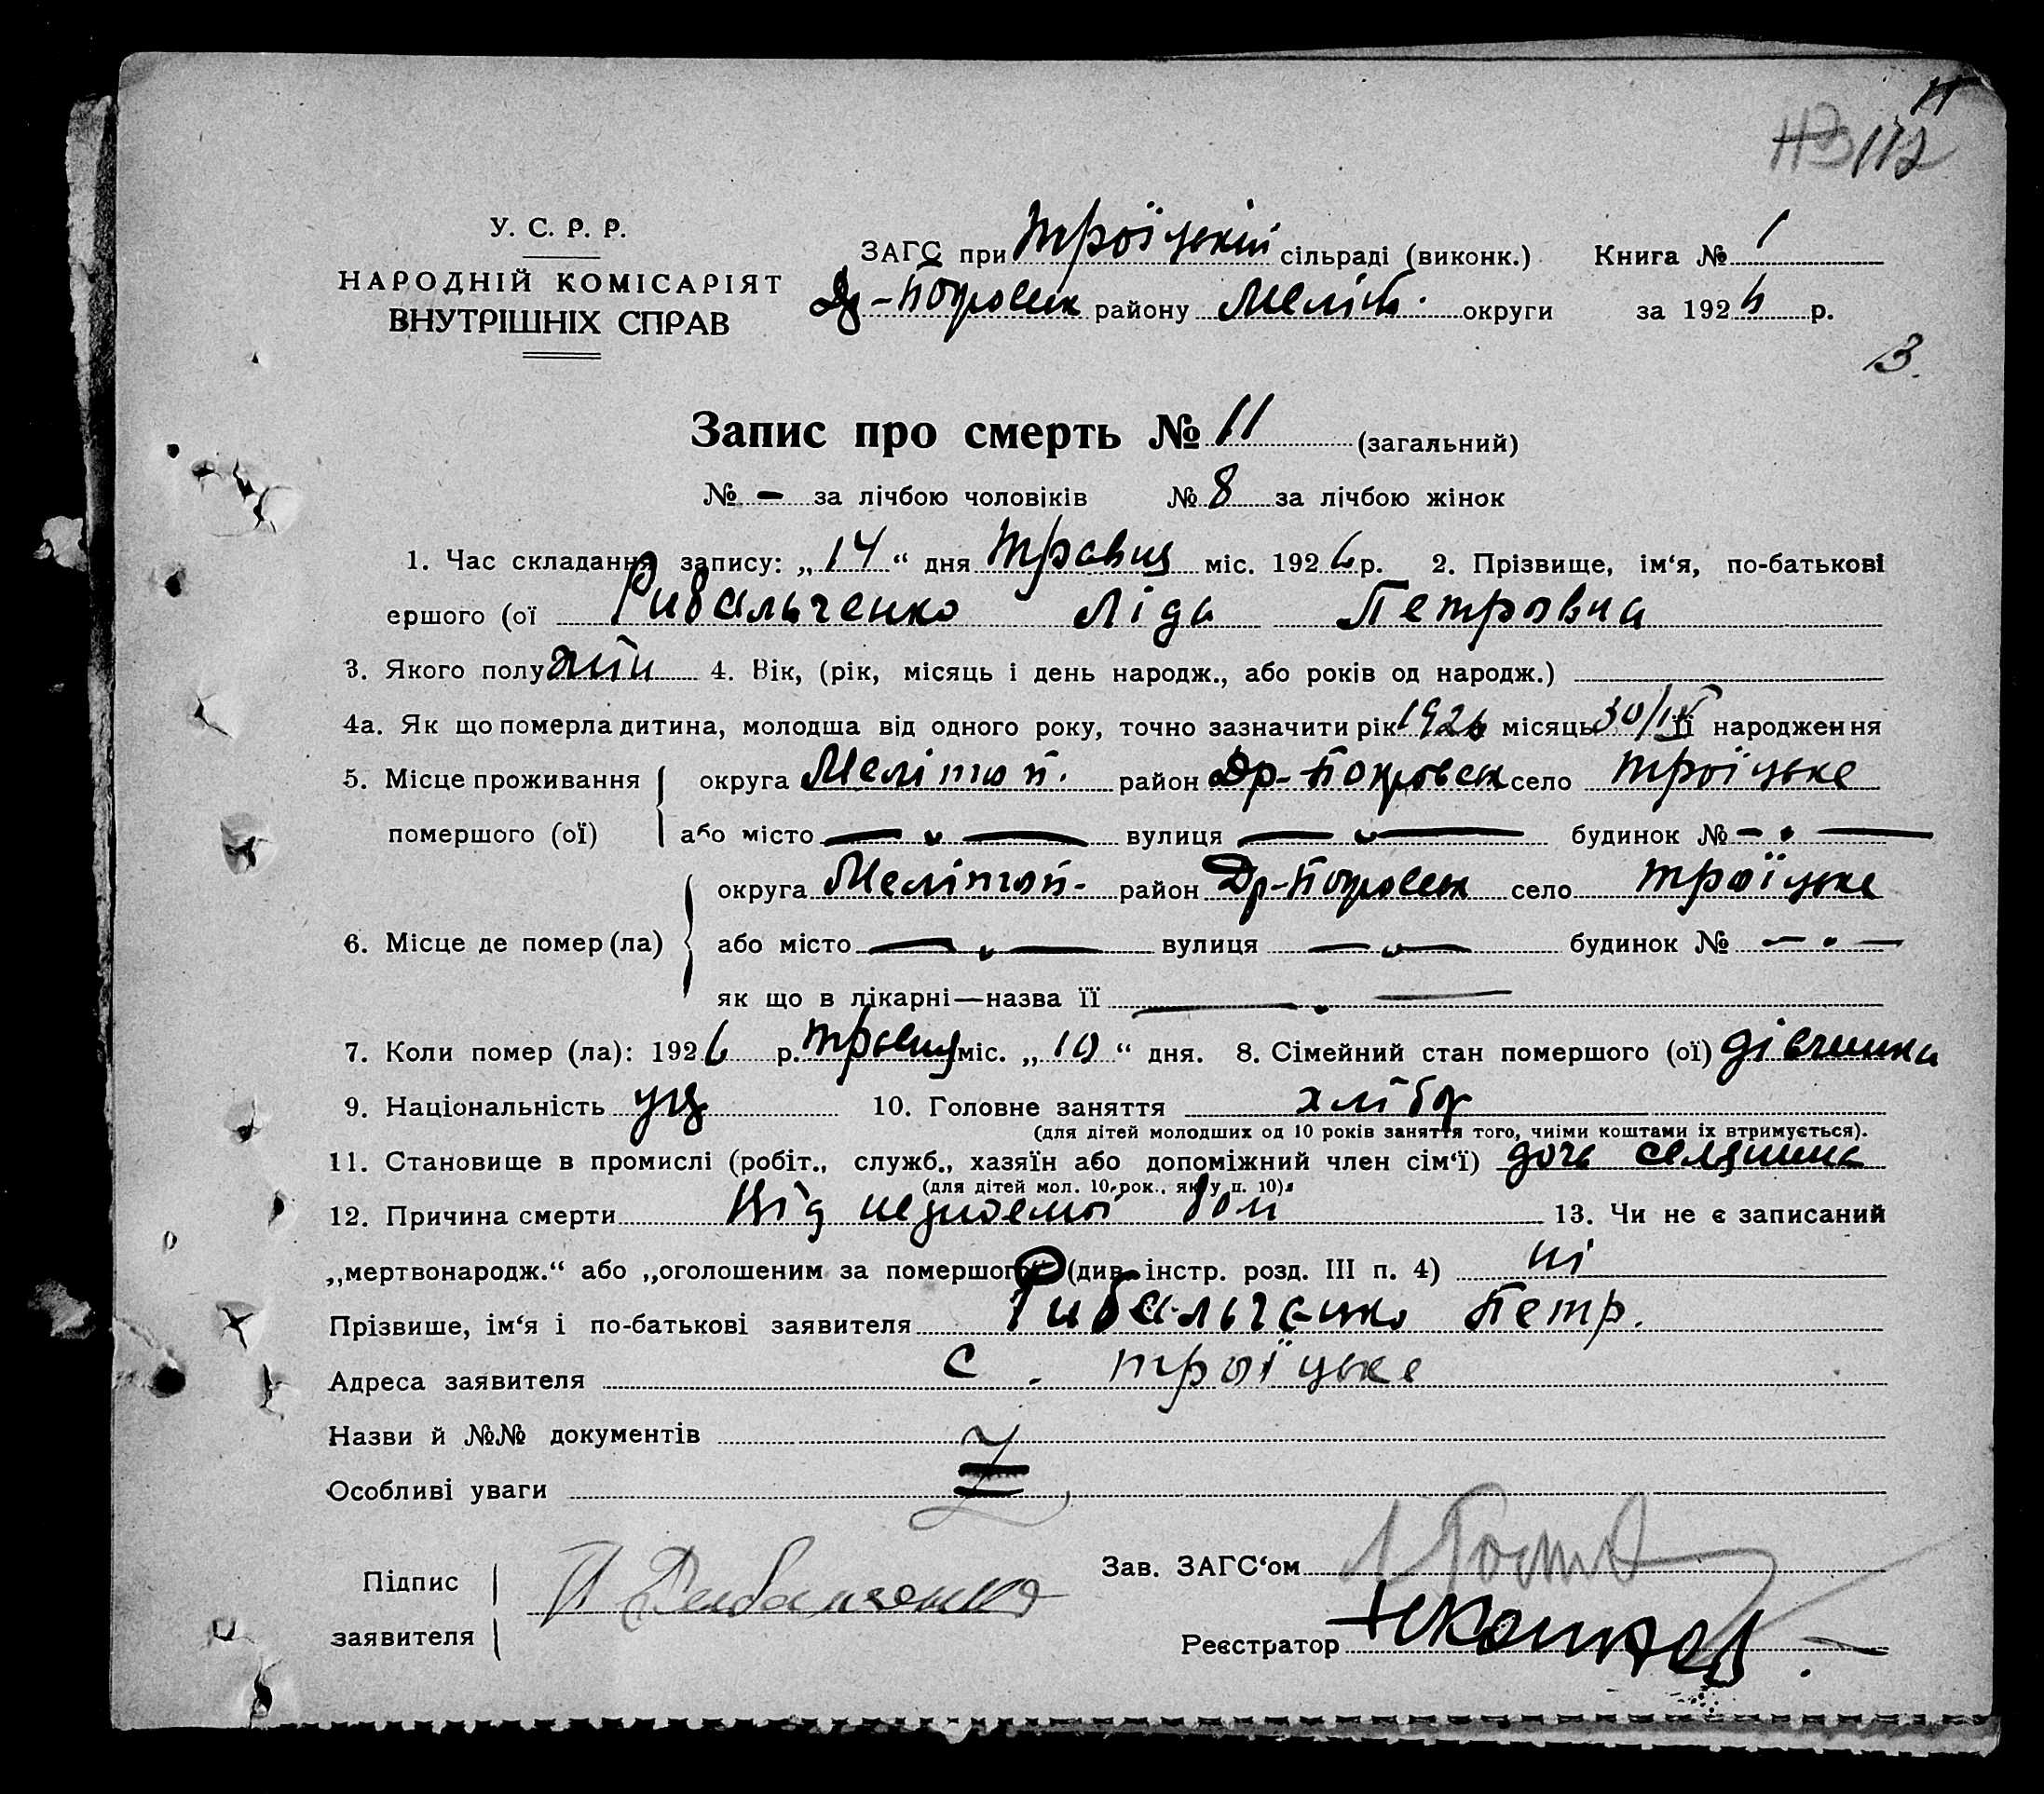 112
У. С. Р. Р.
НАРОДНІЙ КОМІСАРІЯТ
ВНУТРІШНІХ СПРАВ
ЗАГС при Троїцькій сільраді (виконк.) Книга № 1
Др-Покровськ району Меліт. округи за 1926 р.
Запис про смерть № 11 (загальний)
№ - за лічбою чоловіків № 8 за лічбою жінок
1. Час складання запису: „14“ дня Травня міс. 1926 р. 2. Прізвище, ім‘я, по-батькові
ершого (ої Рибальченко Ліда Петровна
3. Якого полу жін 4. Вік, (рік, місяць і день народж., або років од народж.)
4а. Як що померла дитина, молодша від одного року, точно зазначити рік 1926 місяць 30/IV її народження
5. Місце проживання округа Мелітоп. район Др-Покровськ село Троїцьке
помершого (ої) або місто — „ — вулиця — „ — будинок № - • —
округа Мелітоп. район Др-Покровськ село Троїцьке
6. Місце де помер (ла) або місто — „ — вулиця — „ — будинок № — • —
як що в лікарні—назва її — „ —
7. Коли помер (ла): 1926 р. травня міс. „10“ дня. 8. Сімейний стан помершого (ої) дівчинка
9. Національність укр 10. Головне заняття хлібор
(для дітей молодших од 10 років заняття того, чиїми коштами їх втримується).
11. Становище в промислі (робіт., служб., хазяїн або допоміжний член сім‘ї) дочь селянина
(для дітей мол. 10 рок., як у п. 10).
12. Причина смерти Від 13. Чи не є записаний
„мертвонародж.“ або „оголошеним за помершого“ (див. інстр. розд. III п. 4) ні
Прізвише, ім‘я і по-батькові заявителя Рибальченко Петр.
Адреса заявителя с. Троїцьке
Назви й №№ документів
Особливі уваги
Підпис
заявителя
П Рибальченко
Зав. ЗАГС‘ом
Реєстратор